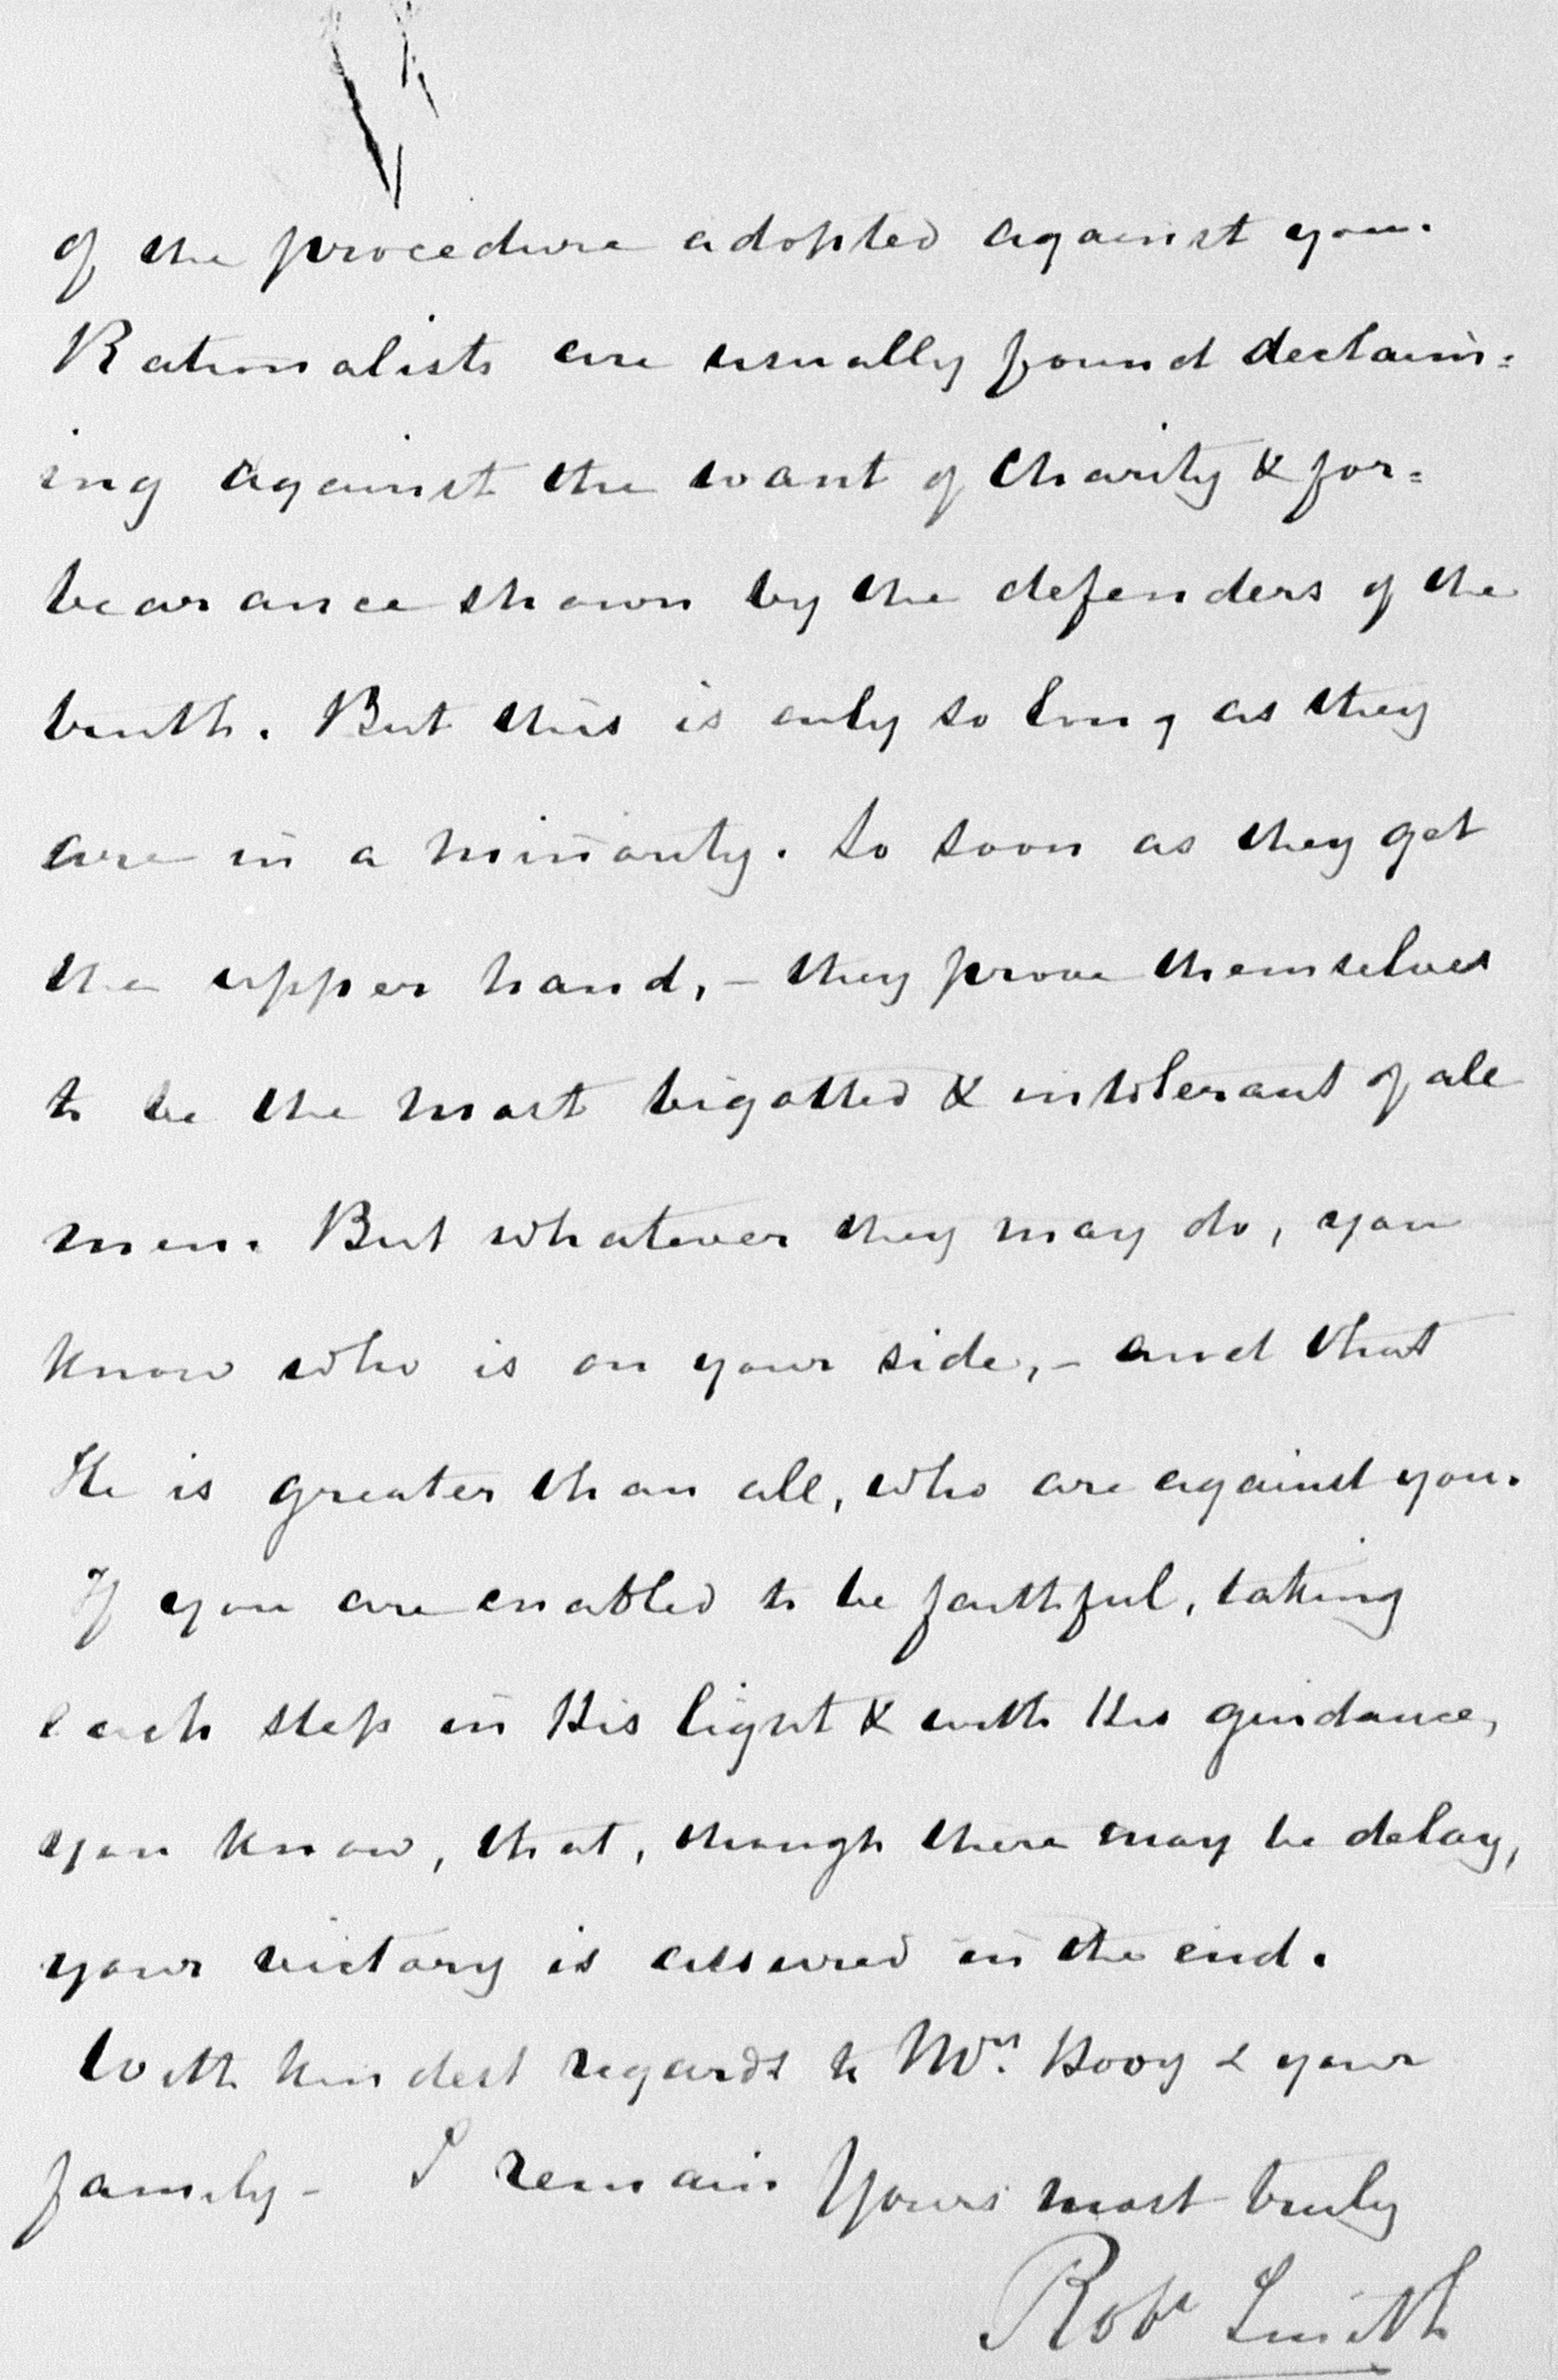 of the procedure adopted against you.
Rationalists are usually found declaim=
ing against the want of charity & for=
bearance shown by the defenders of the
truth. But this is only so long as they
are in a minority. So soon as they get
the upper hand, – they prove themselves
to be the most bigotted & intolerant of all
men. But whatever they may do, you
know who is on your side, – and that
He is greater than all, who are against you.
If you are enabled to be faithful, taking
each step in His light & with His guidance,
you know, that, though there may be delay,
your victory is assured in the end.
With kindest regards to Mrs. Hovy & your
family – I remain Yours most truly
Robt Smith